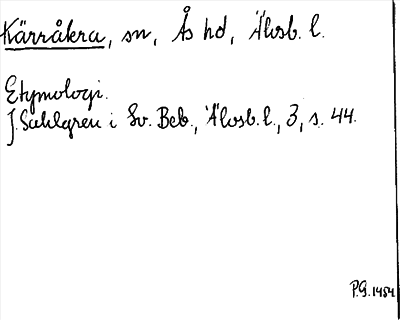 Kärråkra, sn, Ås hd, Älvsb. l.
Etymologi.
J. Sahlgren i Sv. Beb., Älvsb. l., 3, s. 44.
P.G. 1954